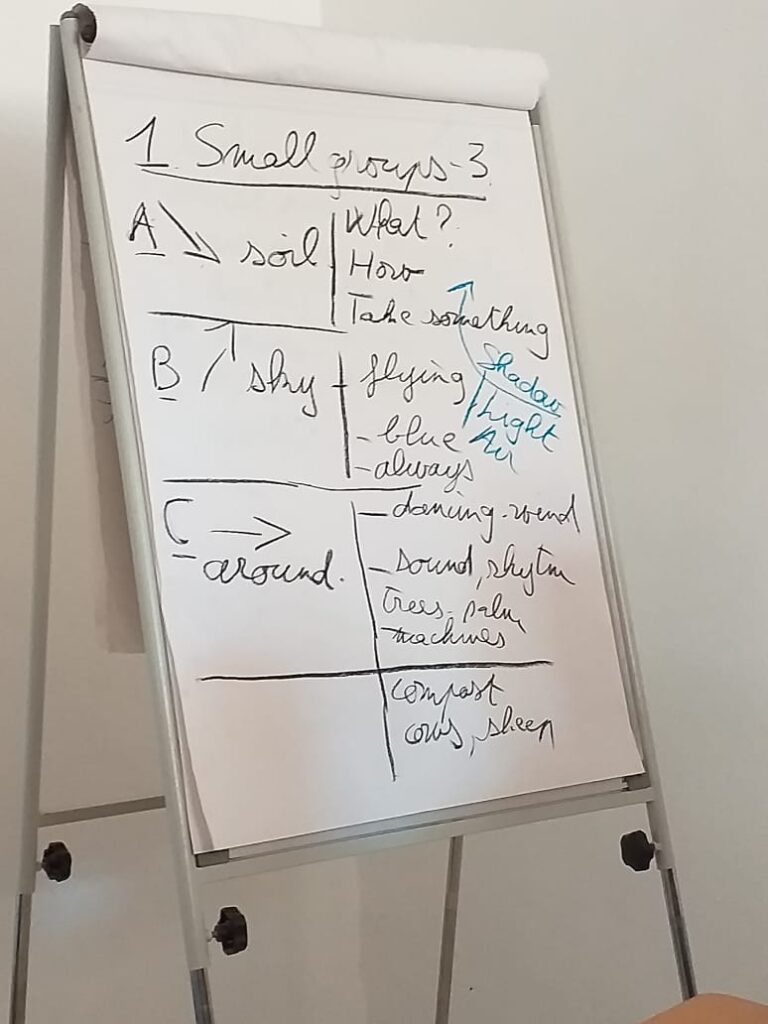 1. Small groups - 3
A soil
What?
How
Take something
B sky
- flying
- blue
- always
Shadow
Light
Air
C around.
- dancing. wend
- sound, rhytm
trees - palm
machines
compost
cows, sheep